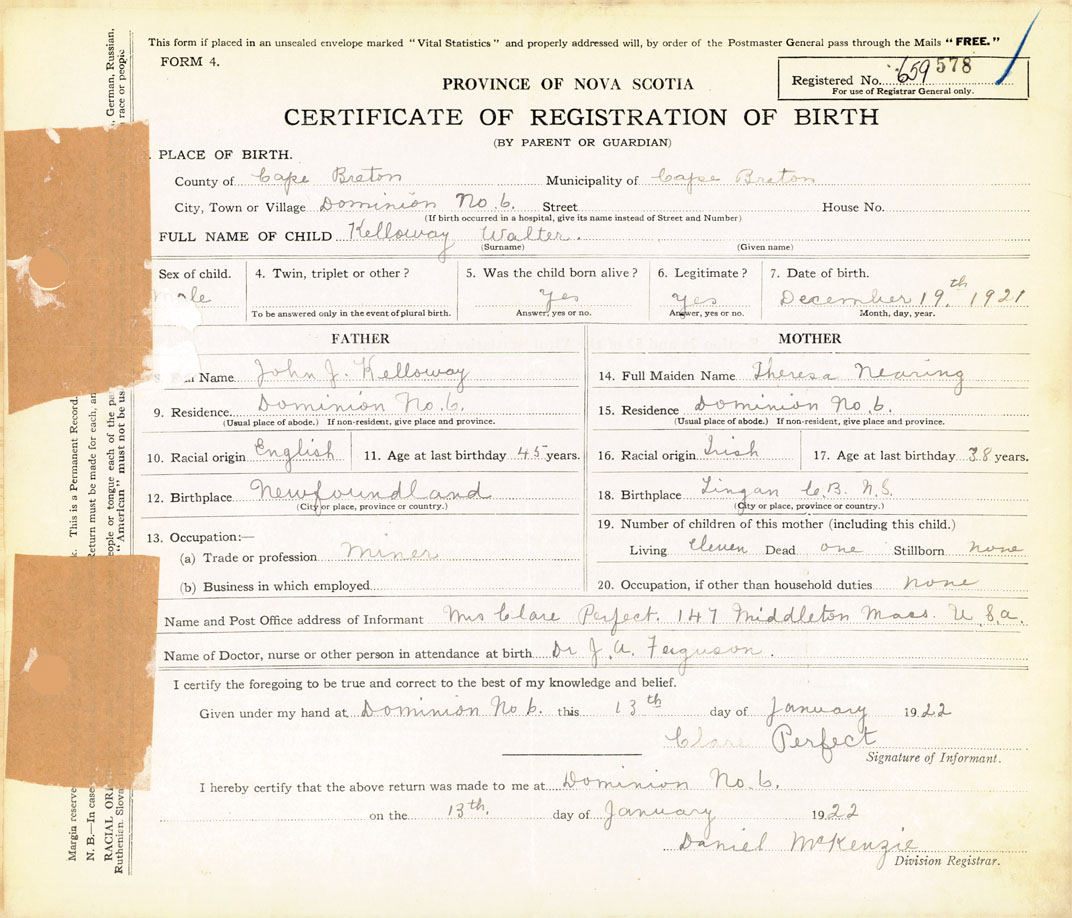 This form if placed in an unsealed envelope marked "Vital Statistics" and properly addressed will, by order of the Postmaster General pass through the Mails "FREE."
FORM 4.
PROVINCE OF NOVA SCOTIA
Registered No. 659 578
For use of Registrar General only.
CERTIFICATE OF REGISTRATION OF BIRTH
(BY PARENT OR GUARDIAN)
. PLACE OF BIRTH.
County of Cape Breton Municipality of Cape Breton
City, Town or Village Dominion No. 6. Street House No.
(If birth occurred in a hospital, give its name instead of Street and Number)
FULL NAME OF CHILD Kelloway Walter.
(Surname) (Given name)
Sex of child. 4. Twin, triplet or other? 5. Was the child born alive? 6. Legitimate? 7. Date of birth.
le Yes Yes December 19th 1921
To be answered only in the event of plural birth. Answer, yes or no. Answer, yes or no. Month, day, year.
FATHER MOTHER
Name John J. Kelloway 14. Full Maiden Name Theresa Nearing
9. Residence Dominion No. 6. 15. Residence Dominion No. 6.
(Usual place of abode.) If non-resident, give place and province. (Usual place of abode.) If non-resident, give place and province.
10. Racial origin English 11. Age at last birthday 45 years. 16. Racial origin Irish 17. Age at last birthday 38 years.
12. Birthplace Newfoundland 18. Birthplace Lingan C.B. N.S.
(City or place, province or country.) (City or place, province or country.)
13. Occupation:— 19. Number of children of this mother (including this child.)
(a) Trade or profession Miner Living eleven Dead one Stillborn none
(b) Business in which employed 20. Occupation, if other than household duties none
Name and Post Office address of Informant Mrs Clare Perfect. 147 Middleton Mass. U.S.a.
Name of Doctor, nurse or other person in attendance at birth Dr J. A. Ferguson.
I certify the foregoing to be true and correct to the best of my knowledge and belief.
Given under my hand at Dominion No 6. this 13th day of January 1922
Clare Perfect
Signature of Informant.
I hereby certify that the above return was made to me at Dominion No. 6.
on the 13th. day of January 1922
Daniel McKenzie
Division Registrar.
Margin reserved
k. This is a Permanent Record.
N. B.—In case
Return must be made for each, an
RACIAL ORI
people or tongue each of the pa
, German, Russian,
Ruthenian, Slova
"American" must not be us
race or people